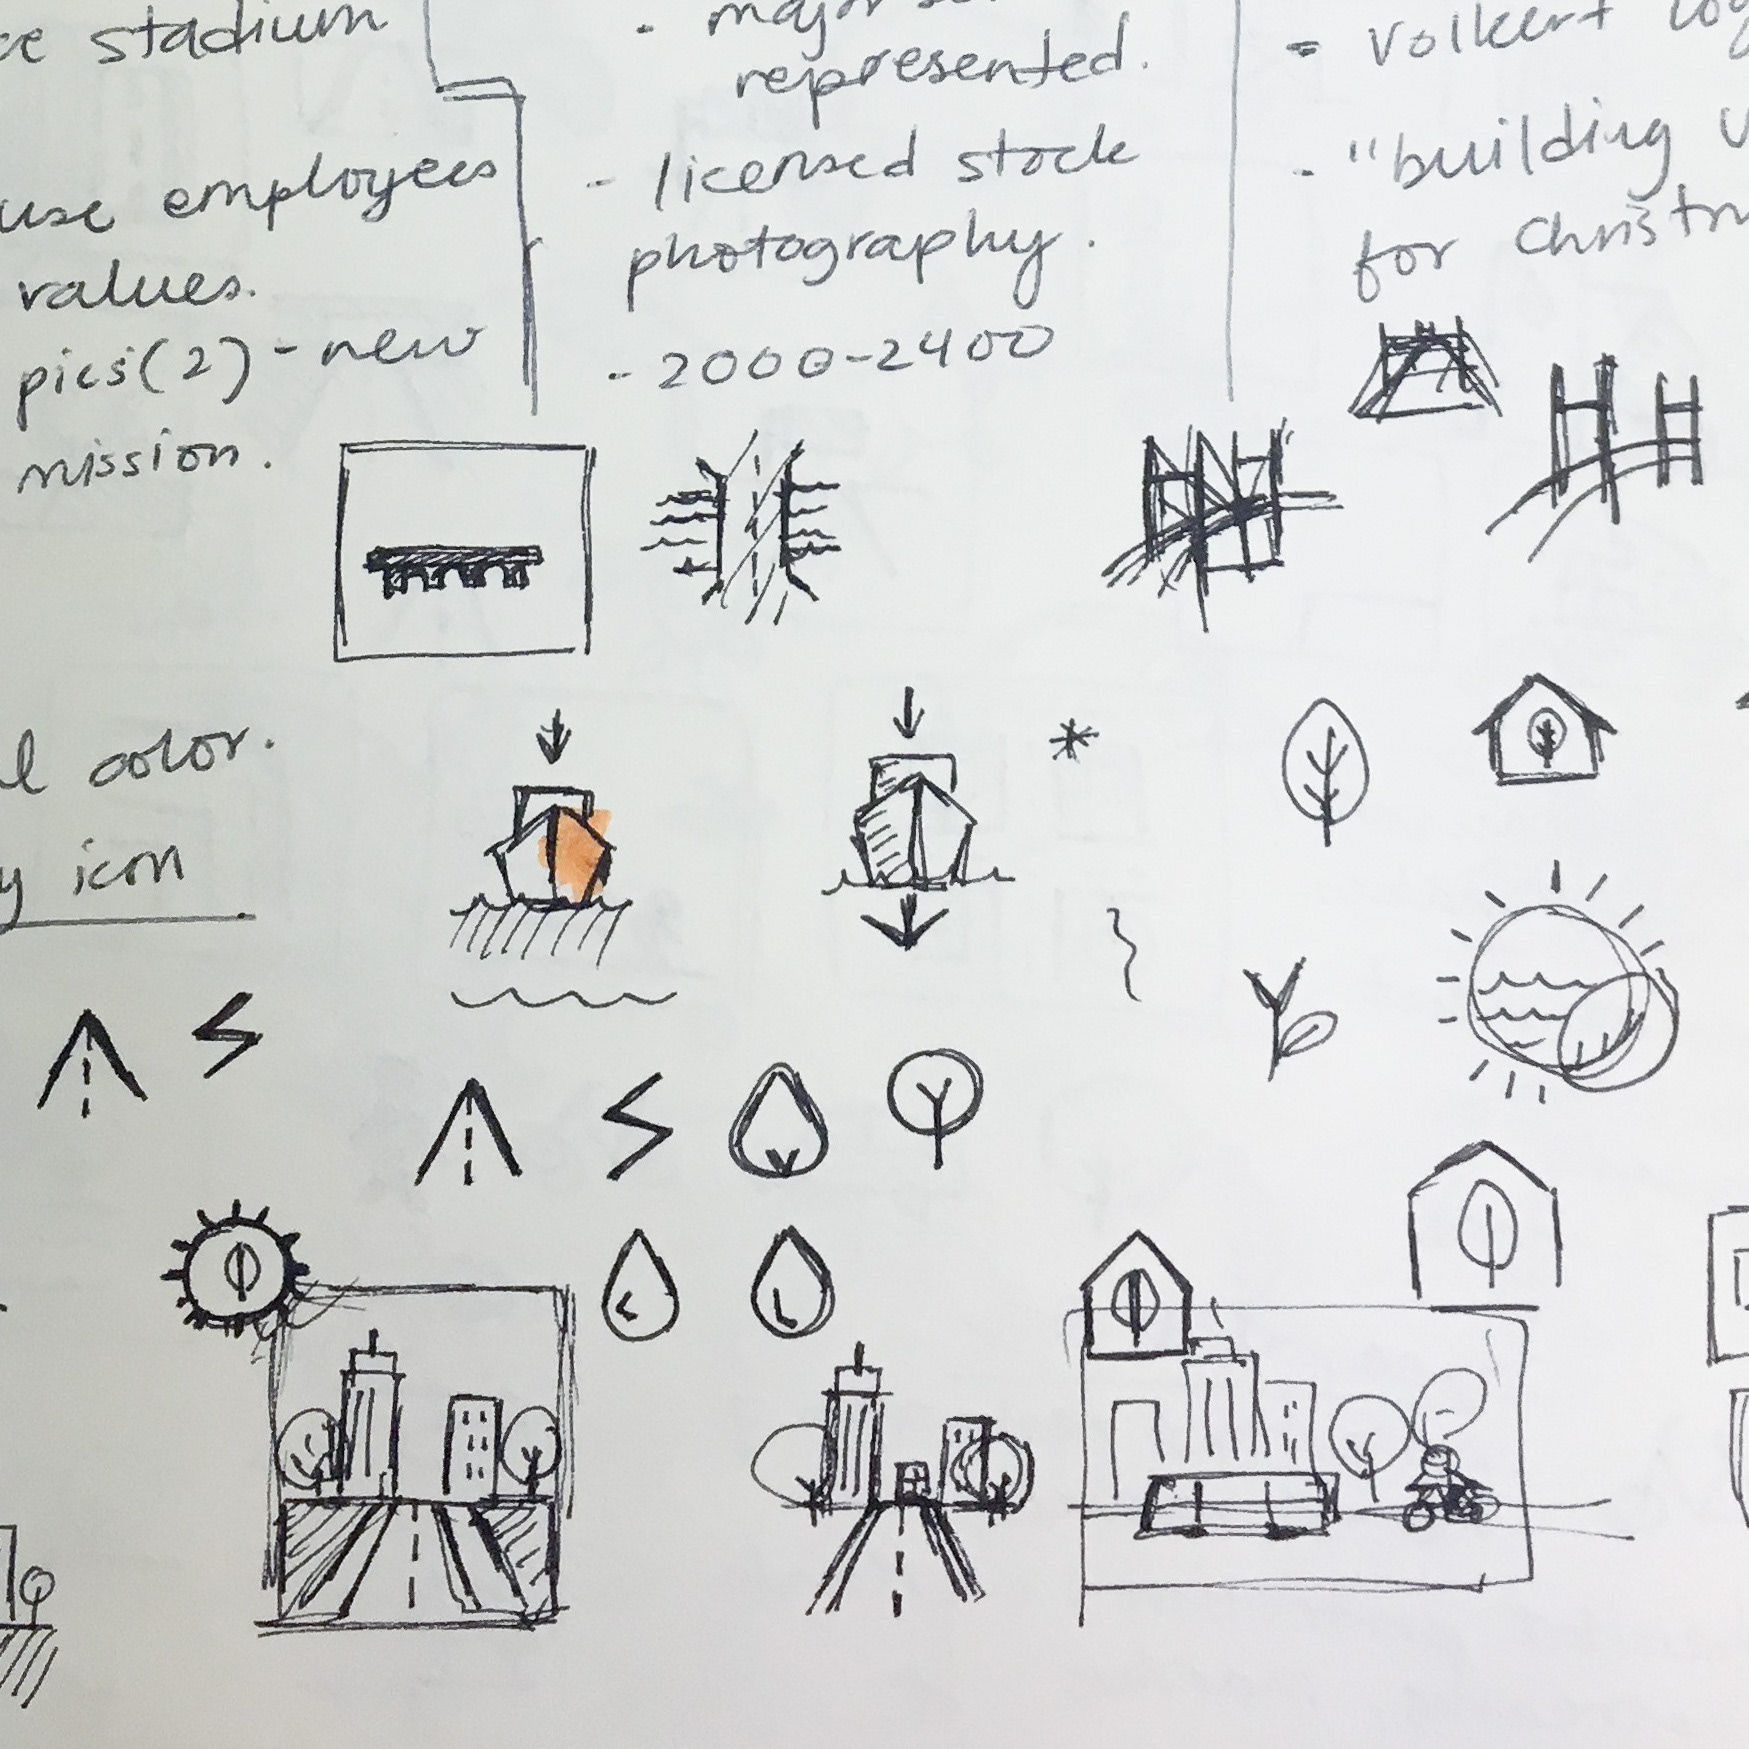 stadium
use employees
values.
pics(2) - new
mission.
color.
icon
- major
represented.
- licensed stock
photography.
- 2000-2400
- Volkert
- "building
for